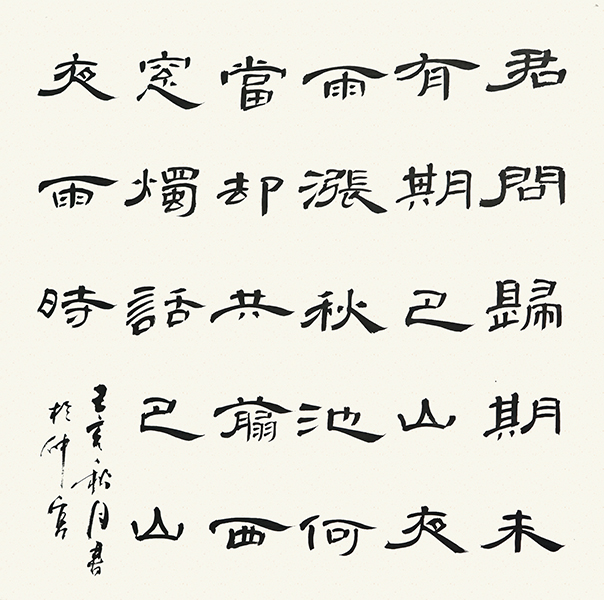 君問歸期未
有期巴山夜
雨漲秋池何
當却共翦西
窗燭話巴山
夜雨時
己亥秋月書
於仲宮